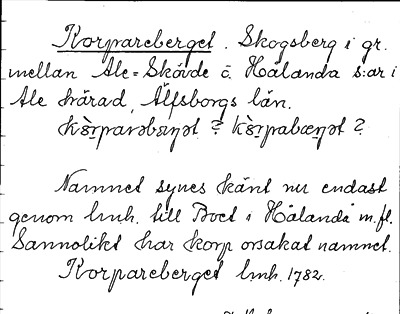 Korpareberget. Skogsberg i gr.
mellan Ale-Skövde o. Hålanda s:ar i
Ale härad, Älfsborgs län.
kò̱rparəbæ̱rjət ? kò̱rpabæ̱rjət ?
Namnet synes känt nu endast
genom lmh. till Boet i Hålanda m.fl.
Sannolikt har korp orsakat namnet.
Korpareberget lmh. 1782.